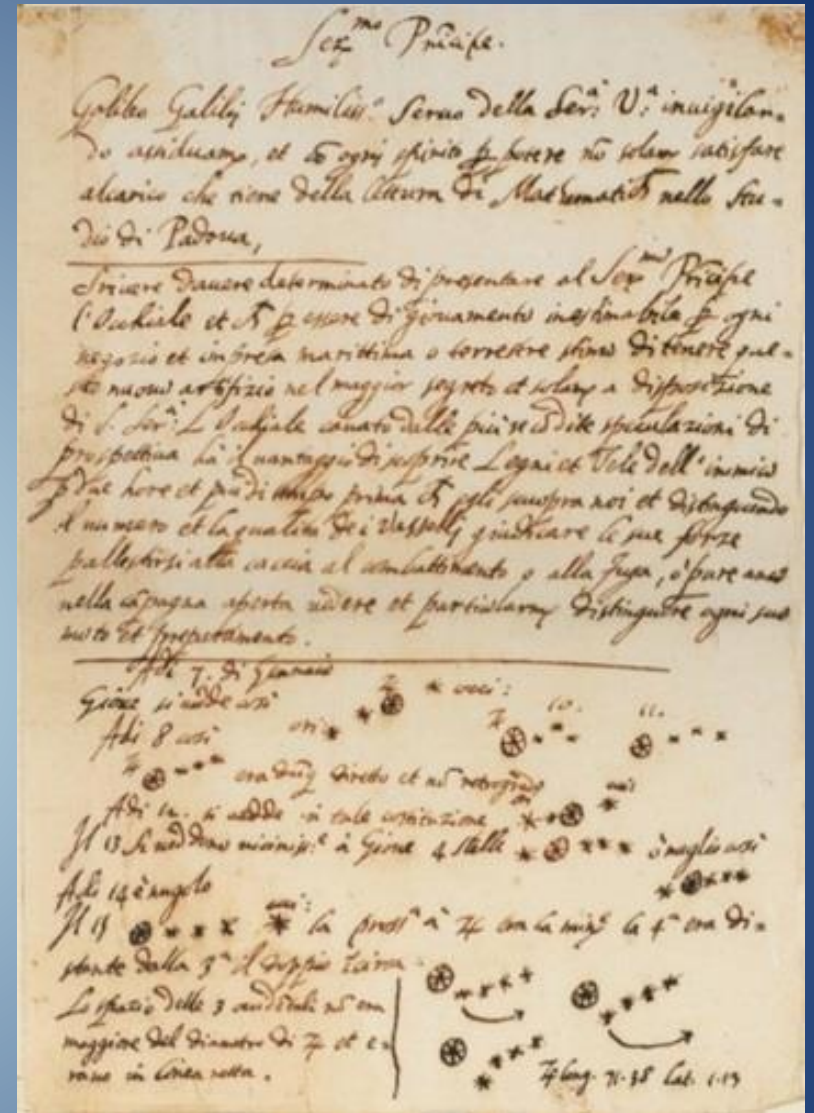 Ser.mo Principe.
Galileo Galilej Humiliss.o Servo della Ser.a V.a invigilan-
do assiduamte, et cō ogni spirito p potere nō solamte satisfare
alcarico che tiene della lettura di Mathematich nello Stu-
dio di Padova,
Scrivere davere determinato di presentare al Ser.mo Principe
l'Occhiale et ch p essere di giovamento inestimabile p ogni
negozio et impresa marittima o terrestre stimo di tenere que-
sto nuovo artifizio nel maggior segreto et solamte a dispositione
di S. Ser.a L'Occhiale cavato dalle più recōdite speculazioni di
prospettiva hà il vantaggio di scoprire Legni et Vele dell' inimico
p due hore et più di tempo prima ch egli scuopra noi et distinguendo
il numero et la qualità dei Vasselli giudicare le sue forze
pallestirsi alla caccia al combattimento o alla fuga, ò pure anco
nella cāpagna aperta vedere et particolarmte distinguere ogni suo
moto et preparamento.
Adi 7. di Gennaio
Gione si vede così occi:
Adi 8 così ori 10. 11.
era dūq diretto et nō retrogrado
Adi 12. si vedde in tale costituzione
Il 13 si veddono vicinis.e à Giove 4 stelle ò meglio così
Adi 14 è nugolo
Il 15 la pross.a à ♃ era la min.e la 4.a era di-
stante dalla 3.a il doppio Lcirca
Lo spazio delle 3 occidētali nō era
maggiore del diametro di ♃ et e-
rano in linea retta.
♃ long. 71.38 Lat. 1.13